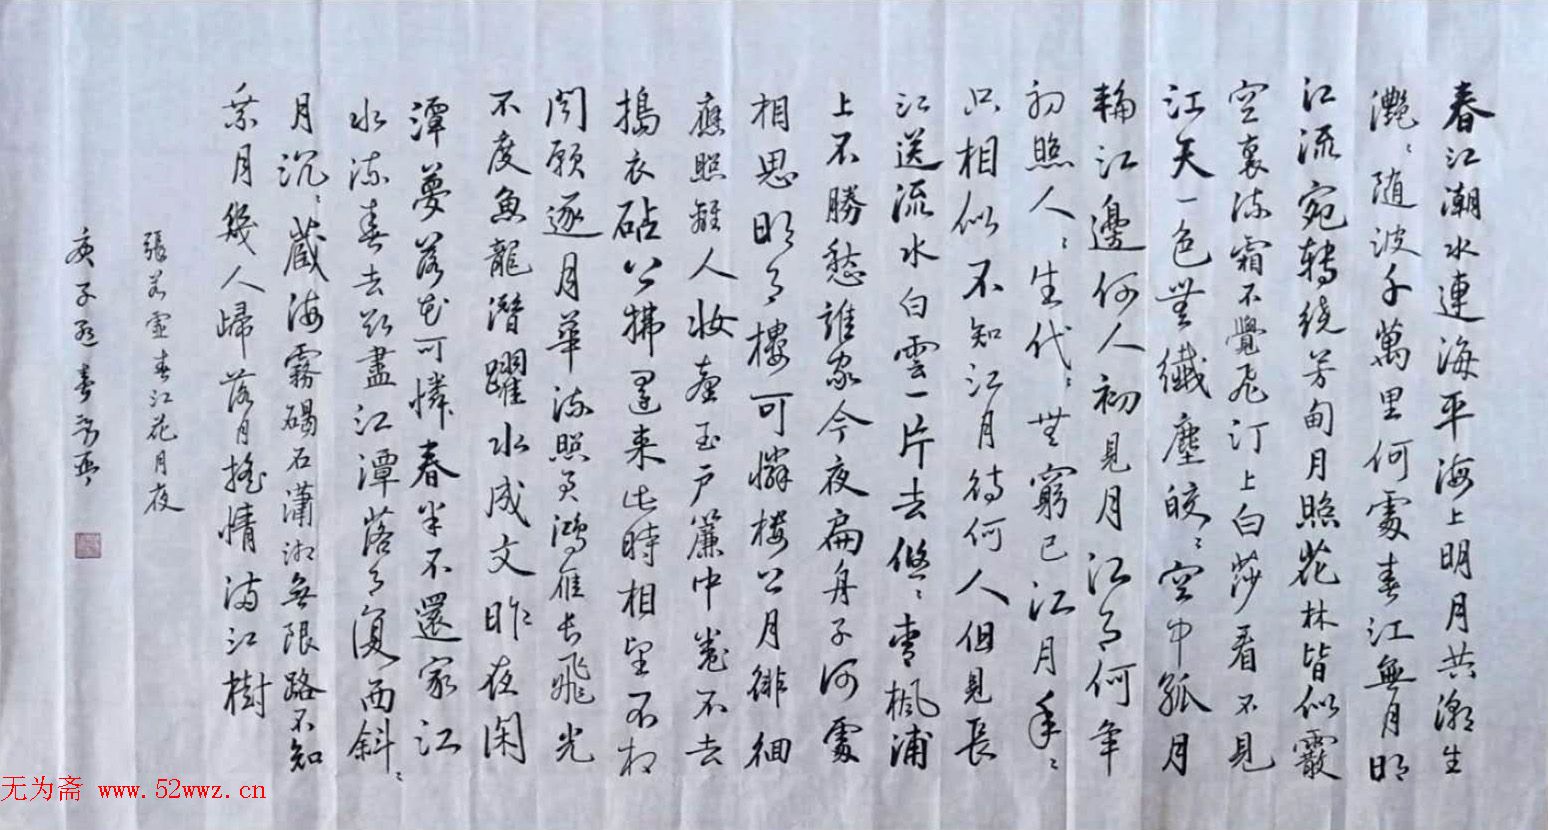 春江潮水連海平海上明月共潮生
灧〻随波千萬里何處春江無月明
江流宛轉繞芳甸月照花林皆似霰
空裏流霜不覺飛汀上白莎看不見
江天一色無纖塵皎〻空中孤月
輪江邊何人初見月江月何年
初照人〻生代〻無窮已江月年〻
只相似不知江月待何人但見長
江送流水白雲一片去悠〻青楓浦
上不勝愁誰家今夜扁舟子何處
相思明月樓可憐樓上月徘徊
應照離人妝臺玉戶簾中卷不去
搗衣砧上拂還来此時相望不相
聞願逐月華流照君鴻雁長飛光
不度魚龍潛躍水成文昨夜閑
潭夢落花可憐春半不還家江
水流春去欲盡江潭落月復西斜〻
月沉〻藏海霧碣石瀟湘無限路不知
乘月幾人歸落月搖情滿江樹
張若虛春江花月夜
庚子
无为斋 www.52wwz.cn